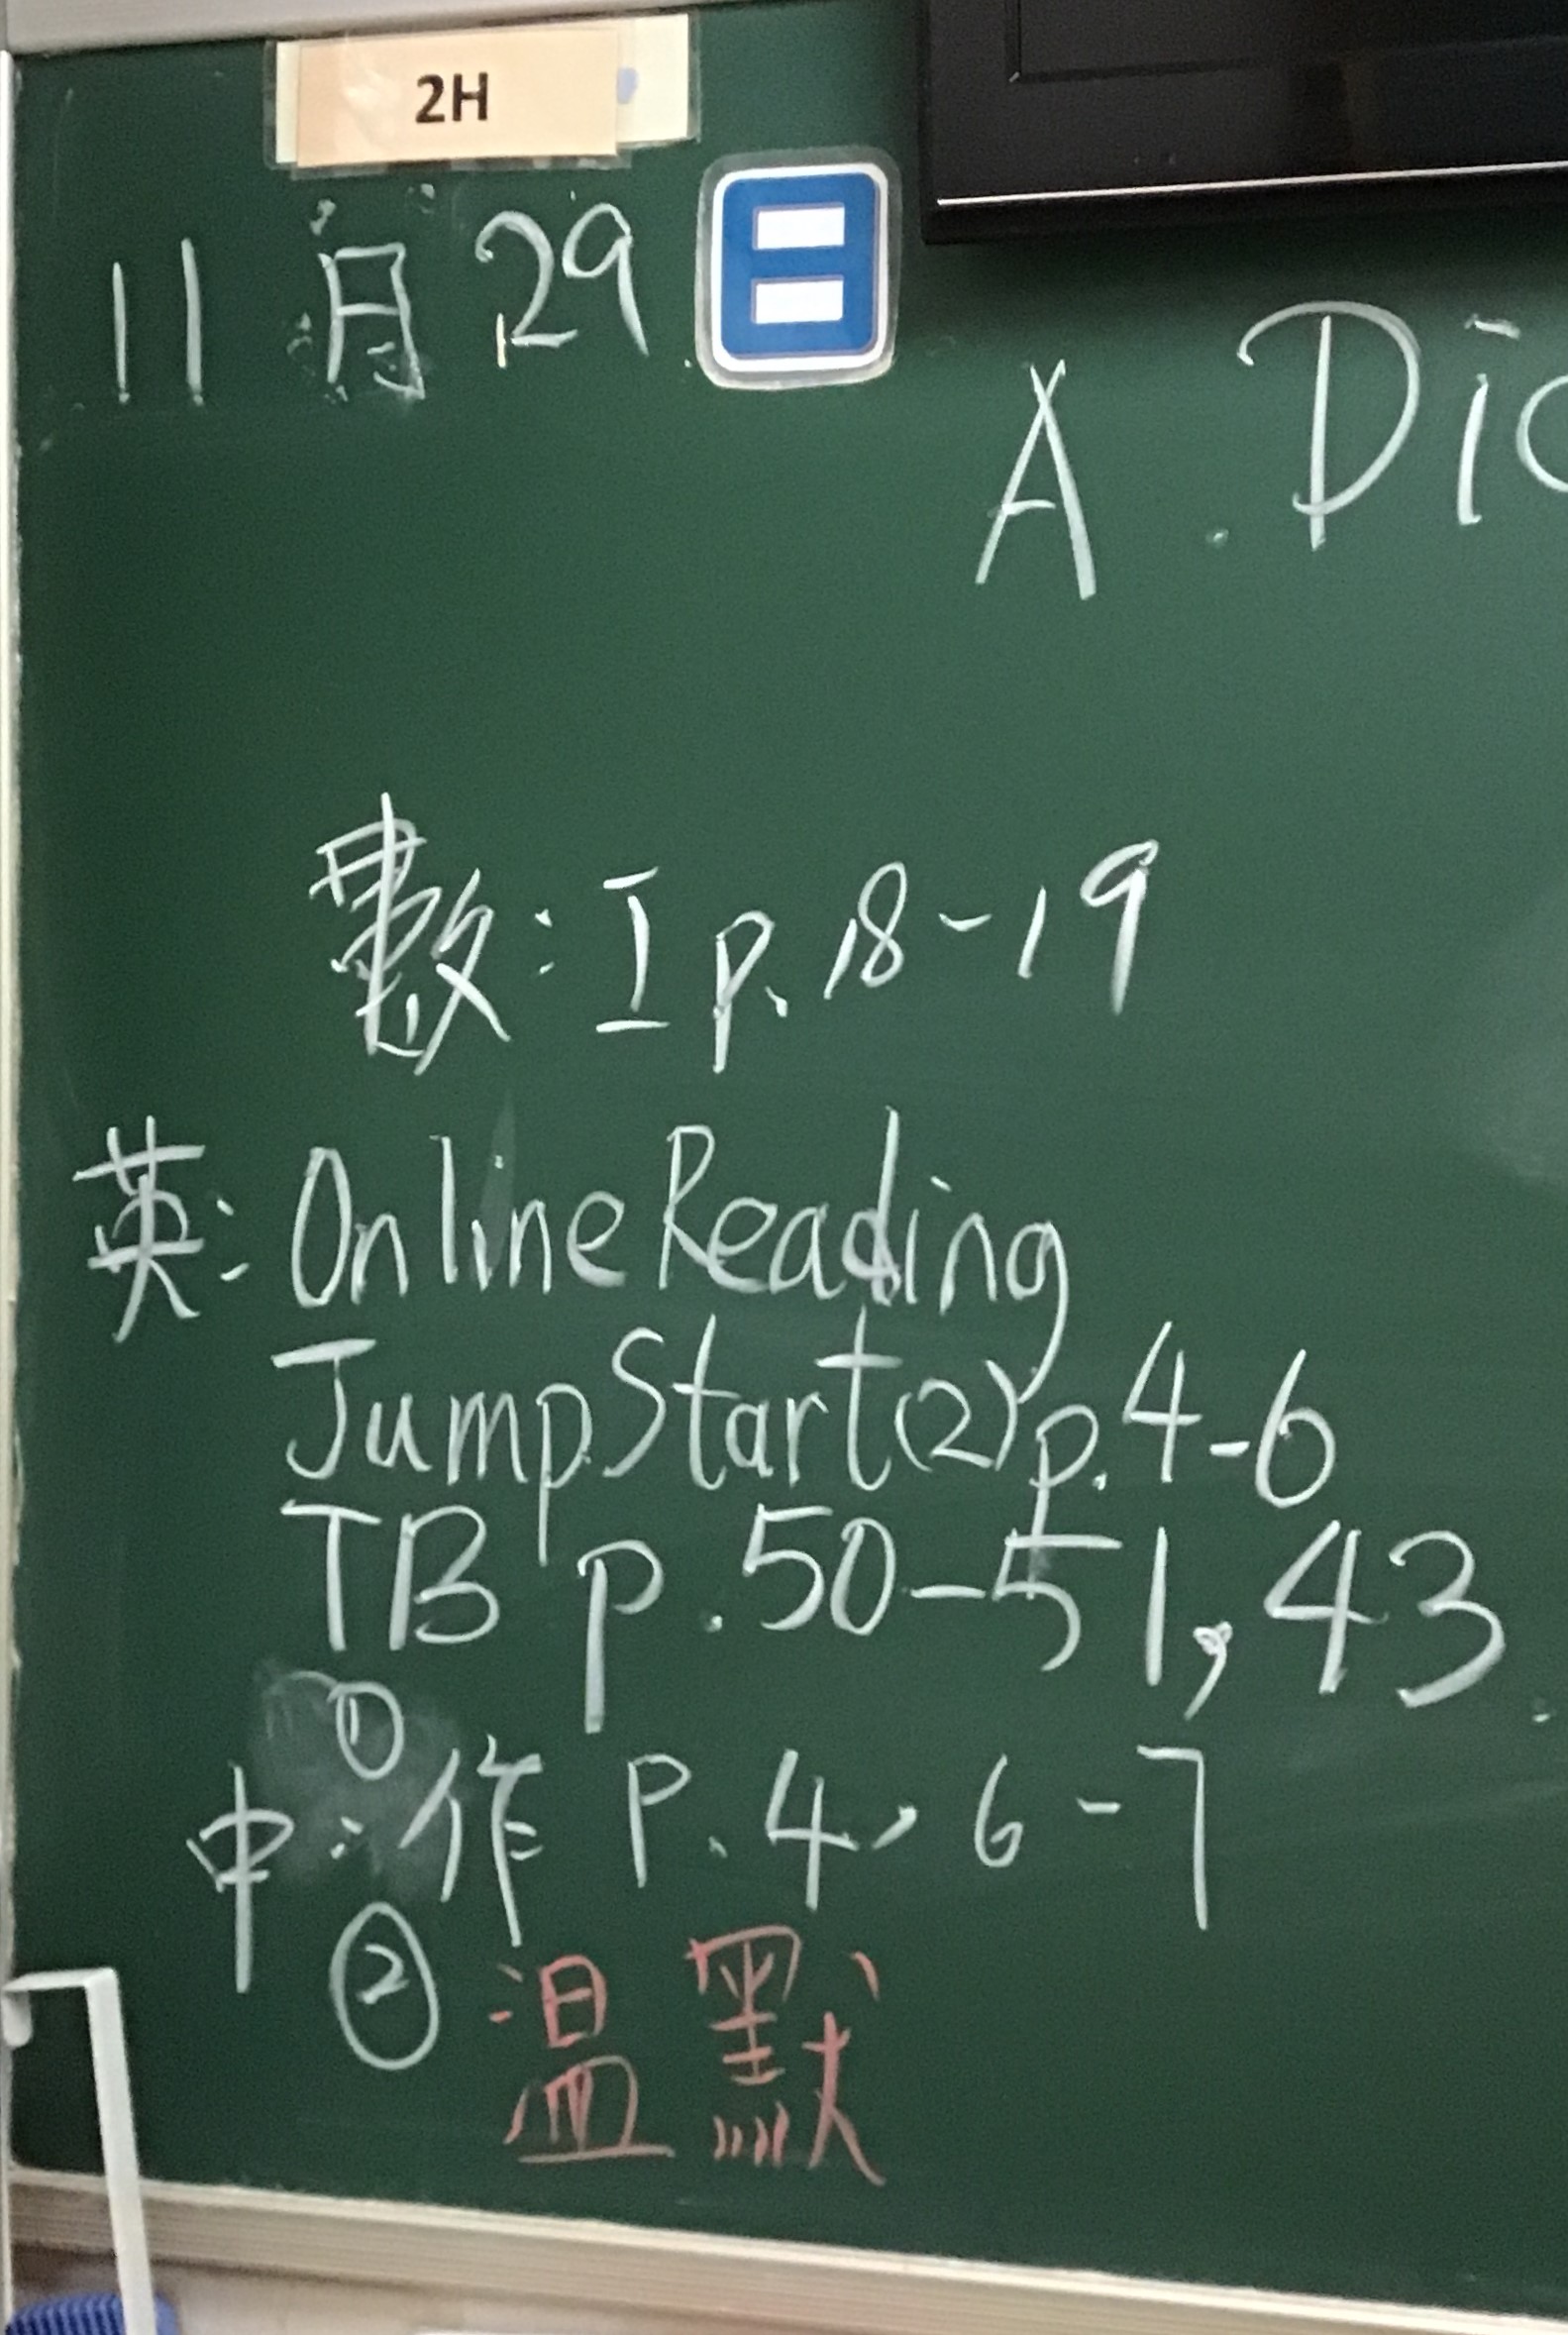 2H
11月29日
A. Dic
數: I p.18-19
英: Online Reading
Jump Start(2) p.4-6
TB p.50-51, 43
中: ①作 P.4, 6-7
②溫默